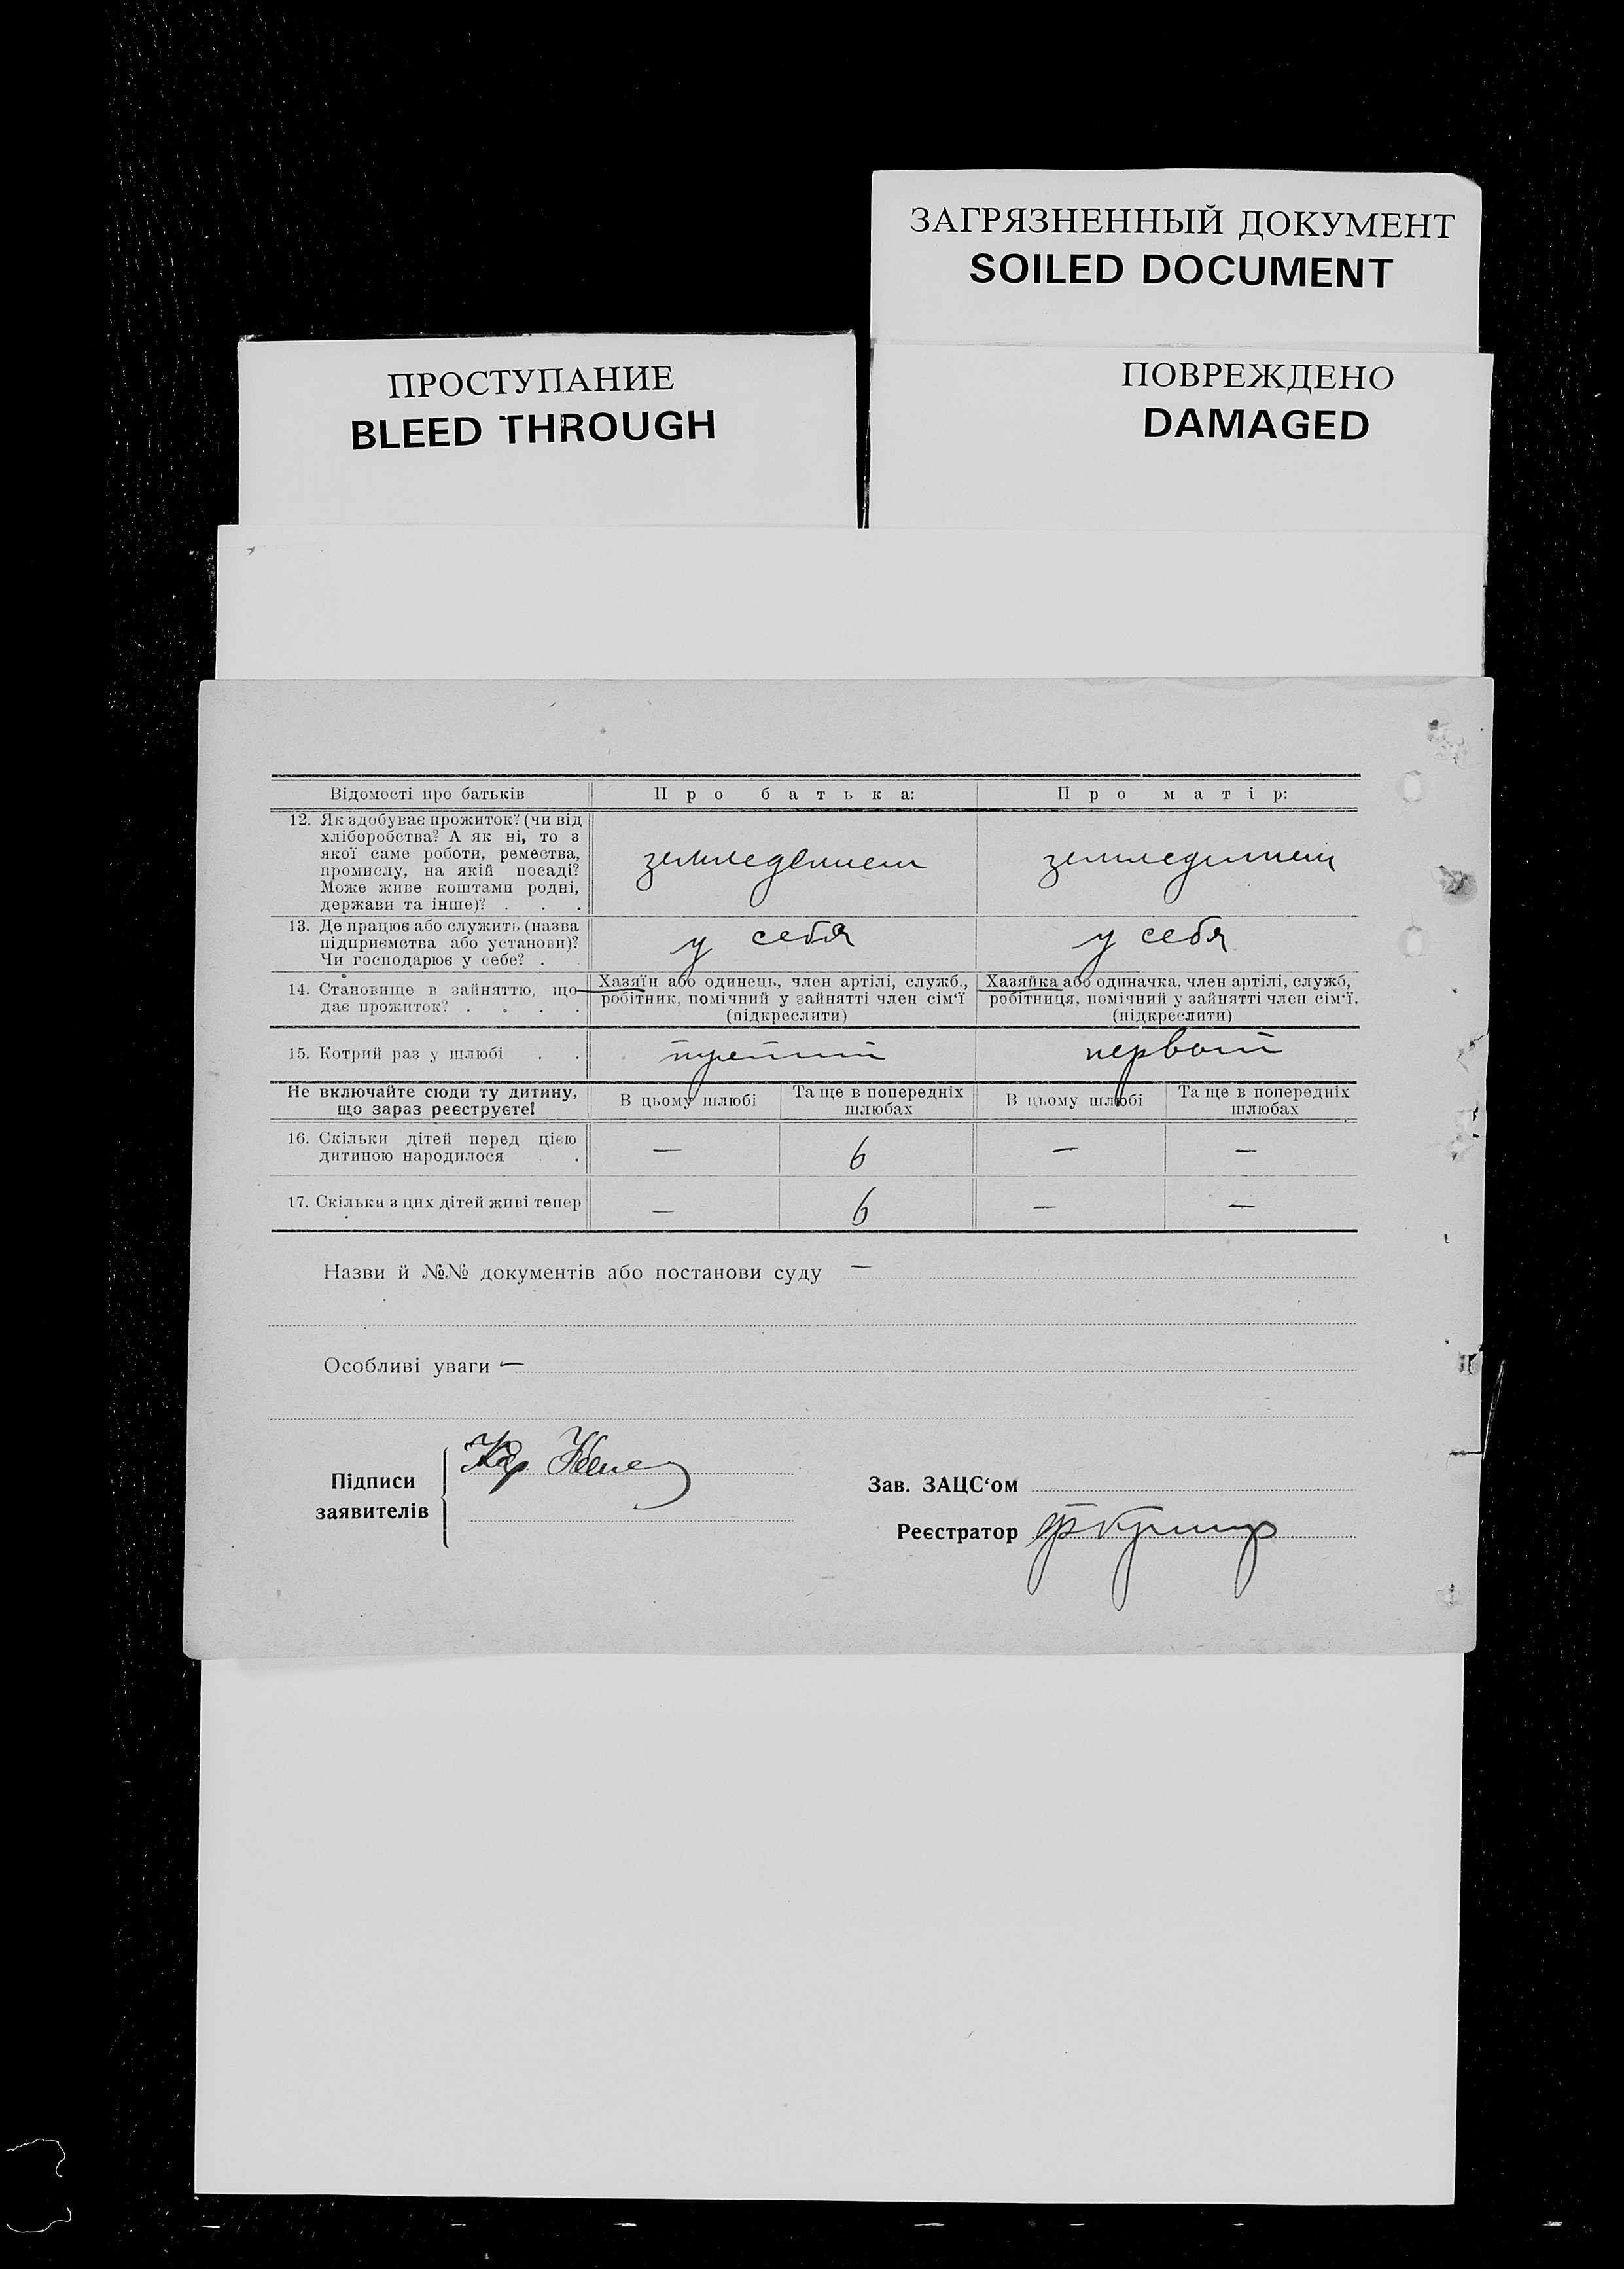 ЗАГРЯЗНЕННЫЙ ДОКУМЕНТ
SOILED DOCUMENT
ПРОСТУПАНИЕ
BLEED THROUGH
ПОВРЕЖДЕНО
DAMAGED
Відомості про батьків
Про батька:
Про матір:
12. Як здобуває прожиток? (чи від
хліборобства? А як ні, то з
якої саме роботи, ремества,
промислу, на якій посаді?
Може живе коштами родні,
держави та інше)? . . .
земледелием
земледелием
13. Де працює або служить (назва
підприємства або установи)?
Чи господарює у себе? .
у себя
у себя
14. Становище в зайняттю, що
дає прожиток? . . . .
Хазяїн або одинець, член артілі, служб.,
робітник, помічний у зайнятті член сім'ї
(підкреслити)
Хазяйка або одиначка, член артілі, служб,
робітниця, помічний у зайнятті член сім'ї.
(підкреслити)
15. Котрий раз у шлюбі . .
третий
первый
Не включайте сюди ту дитину,
що зараз реєструєте!
В цьому шлюбі
Та ще в попередніх
шлюбах
В цьому шлюбі
Та ще в попередніх
шлюбах
16. Скільки дітей перед цією
дитиною народилося . .
— 6 — —
17. Скільки з цих дітей живі тепер
— 6 — —
Назви й №№ документів або постанови суду —
Особливі уваги —
Підписи
заявителів
Зав. ЗАЦС‘ом
Реєстратор